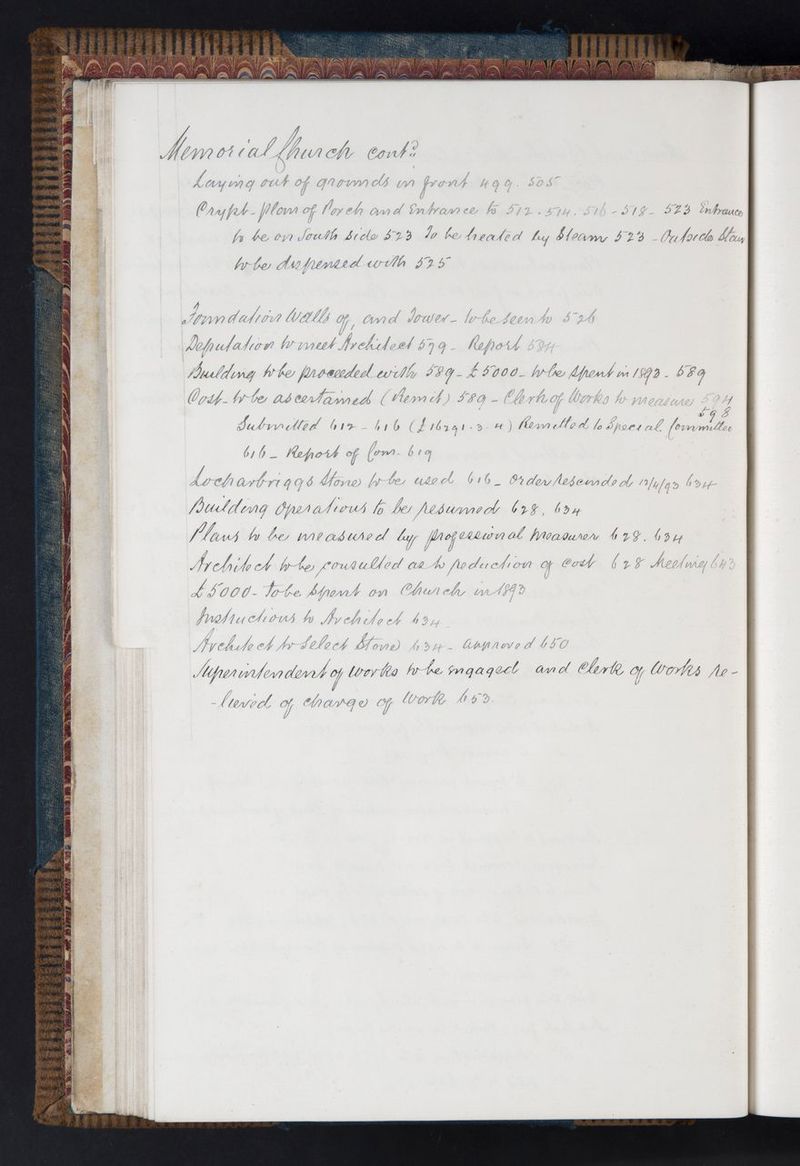 Memorial Church contd
Laying out of grounds in front 499. 505
Crypt- Plan of Porch and Entrance to 512. 514. 516 - 518 - 523 Entrance
to be on South Side 523 To be heated by Steam 523 - Outside Stair
to be dispensed with 525
Foundation Walls of, and Tower - to be seen to 526
Deputation to meet Architect 579 - Report 584
Building to be proceeded with 589 - £5000 - to be spent in 1893 - 589
Cost - to be ascertained (Remit) 589 - Clerk of Works to measure 594
598
Submitted 612 - 616 (£16291. 3. 4) Remitted to Special Committee
616 - Report of Com. 619
Locharbriggs Stone to be used 616 - Order rescinded 12/4/93 634
Building Operations to be resumed 628, 634
Plans to be measured by professional measurer 628. 634
Architect to be consulted as to reduction of cost 628 Meeting 643
£5000 - To be spent on Church in 1893
Instructions to Architect 634
Architect to Select Stone 634 - approved 650
Superintendent of works to be engaged and Clerk of Works re-
-lieved of charge of Work 653.